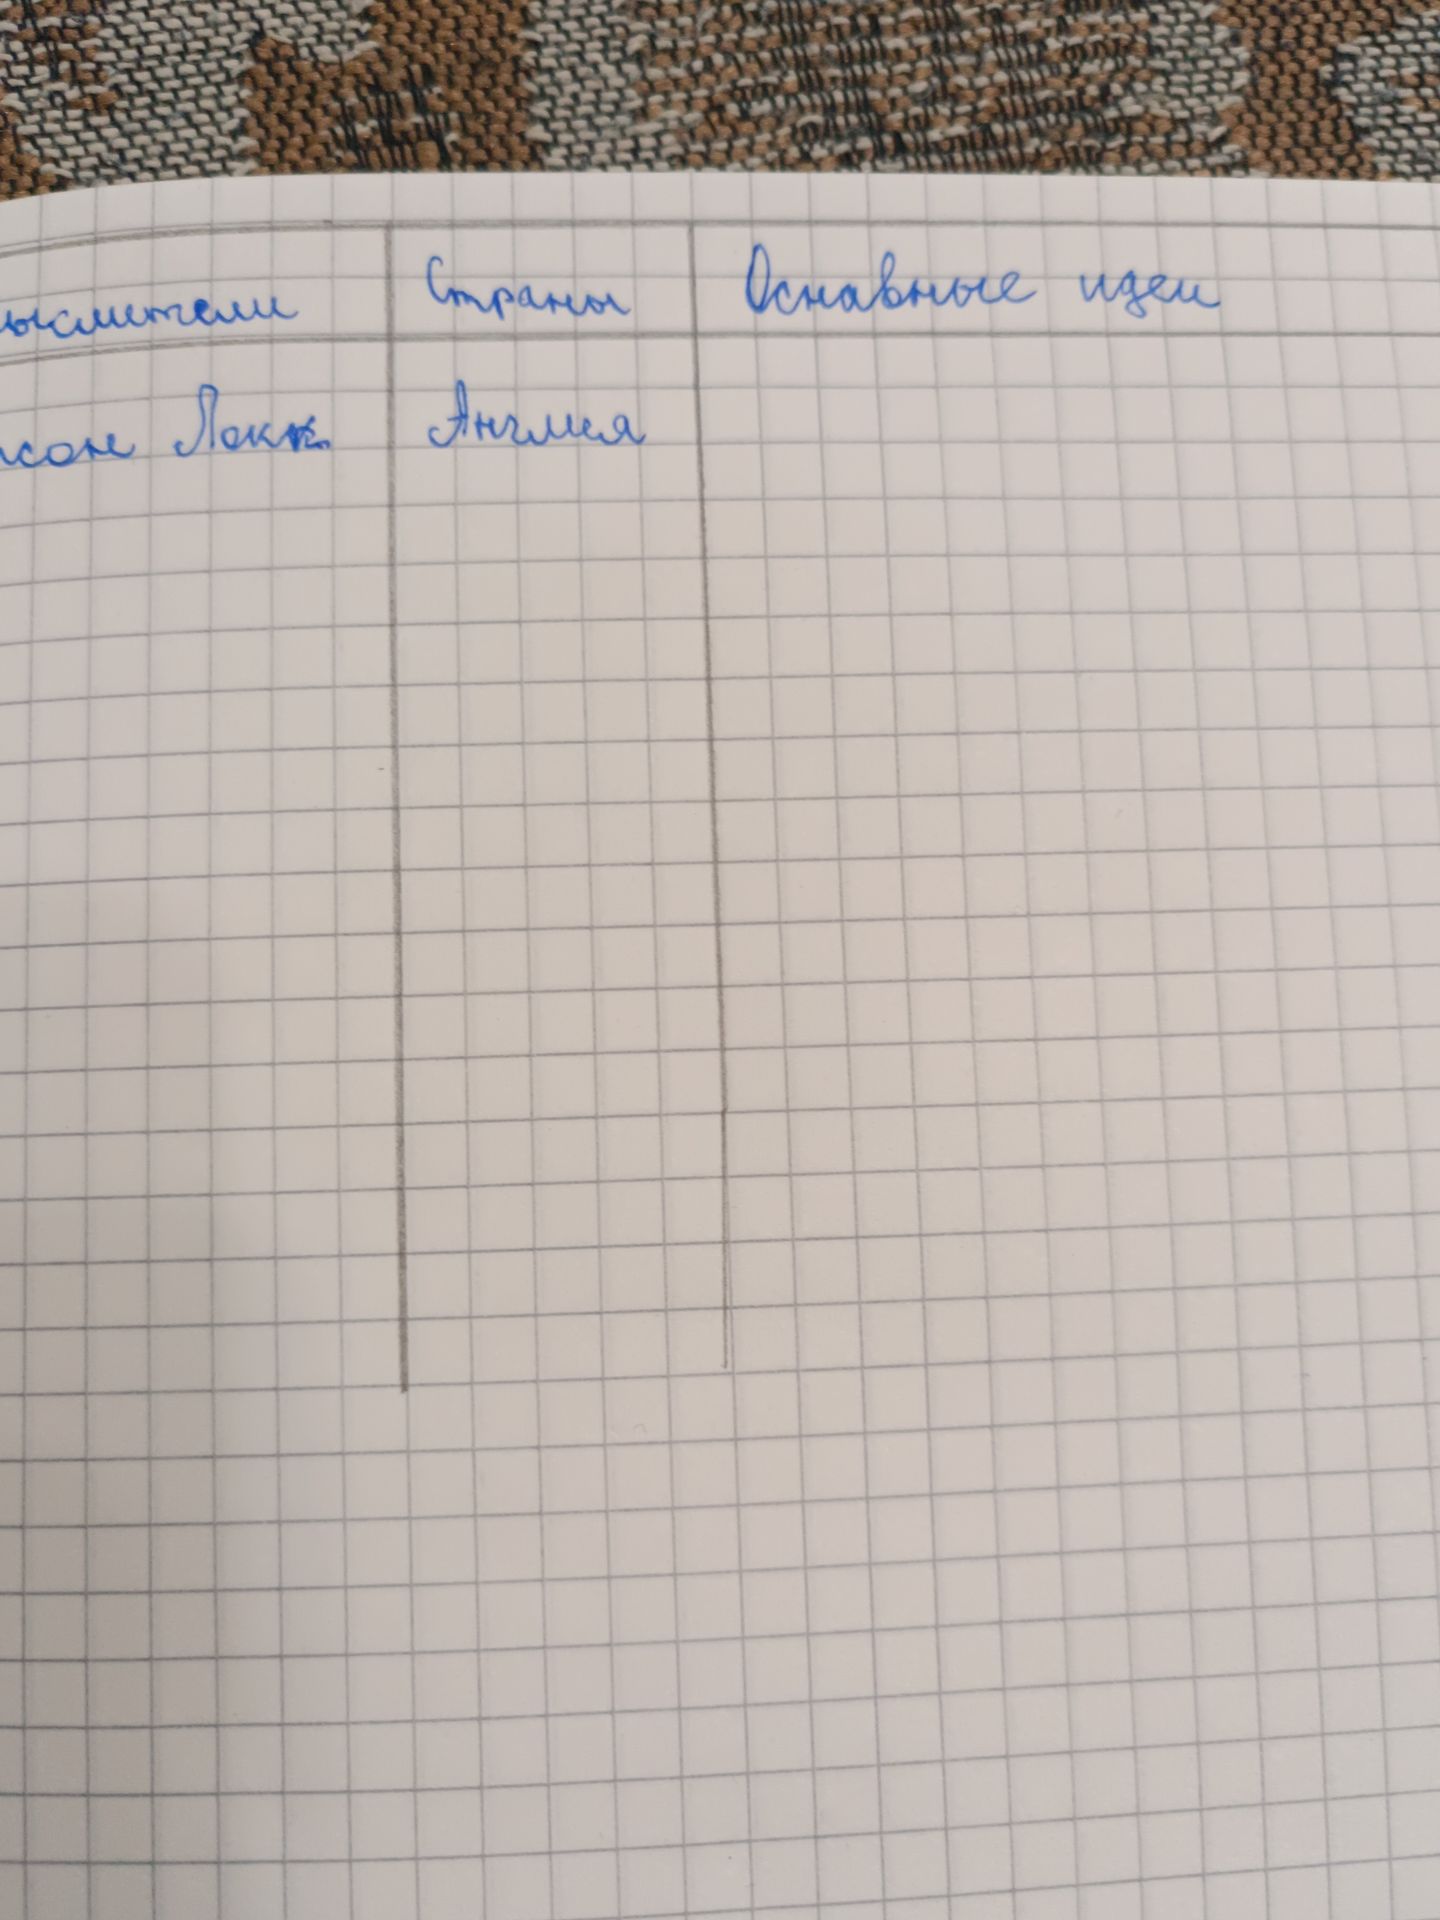 ыслители Страны Основные идеи
жон Локк Англия